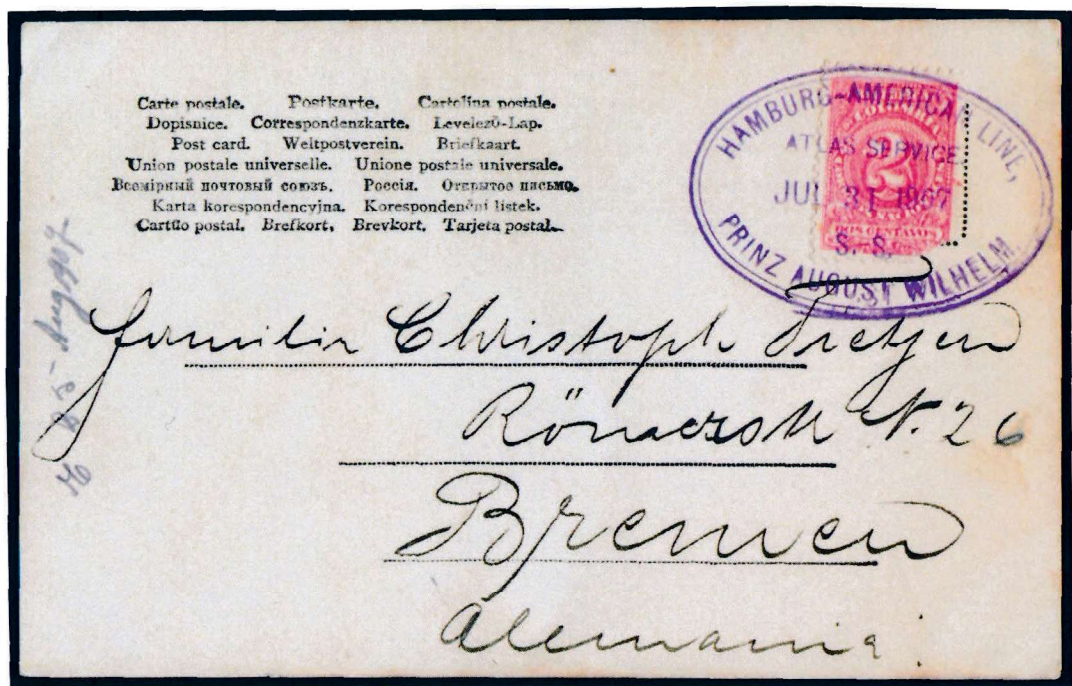 Carte postale. Postkarte. Cartolina postale.
Dopisnice. Correspondenzkarte. Levelező-Lap.
Post card. Weltpostverein. Briefkaart.
Union postale universelle. Unione postale universale.
Всемірный почтовый союзъ. Россія. Открытое письмо.
Karta korespondencyjna. Korespondenční listek.
Cartão postal. Brefkort. Brevkort. Tarjeta postal.
HAMBURG-AMERICAN LINE,
ATLAS SERVICE
JUL 31 1907
S. S.
PRINZ AUGUST WILHELM
COLOMBIA
2
DOS CENTAVOS
Familie Christoph
N. 26
Bremen
Alemania.